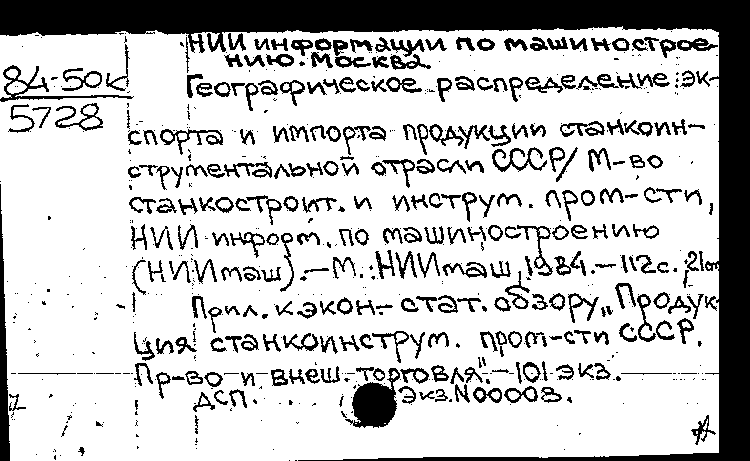 НИИ информации по машинострое-
нию. Москва.
84-50к
5728
Географическое распределение эк-
спорта и импорта продукции станкоин-
струментальной отрасли СССР/ М-во
станкостроит. и инструм. пром-сти,
НИИ информ. по машиностроению
(НИИмаш).-М.:НИИмаш, 1984.-112с. 21см
Прил. к экон.- стат. обзору „Продук-
ция станкоинструм. пром-сти СССР.
Пр-во и внеш. торговля".-101 экз.
ДСП. Экз.N00008.